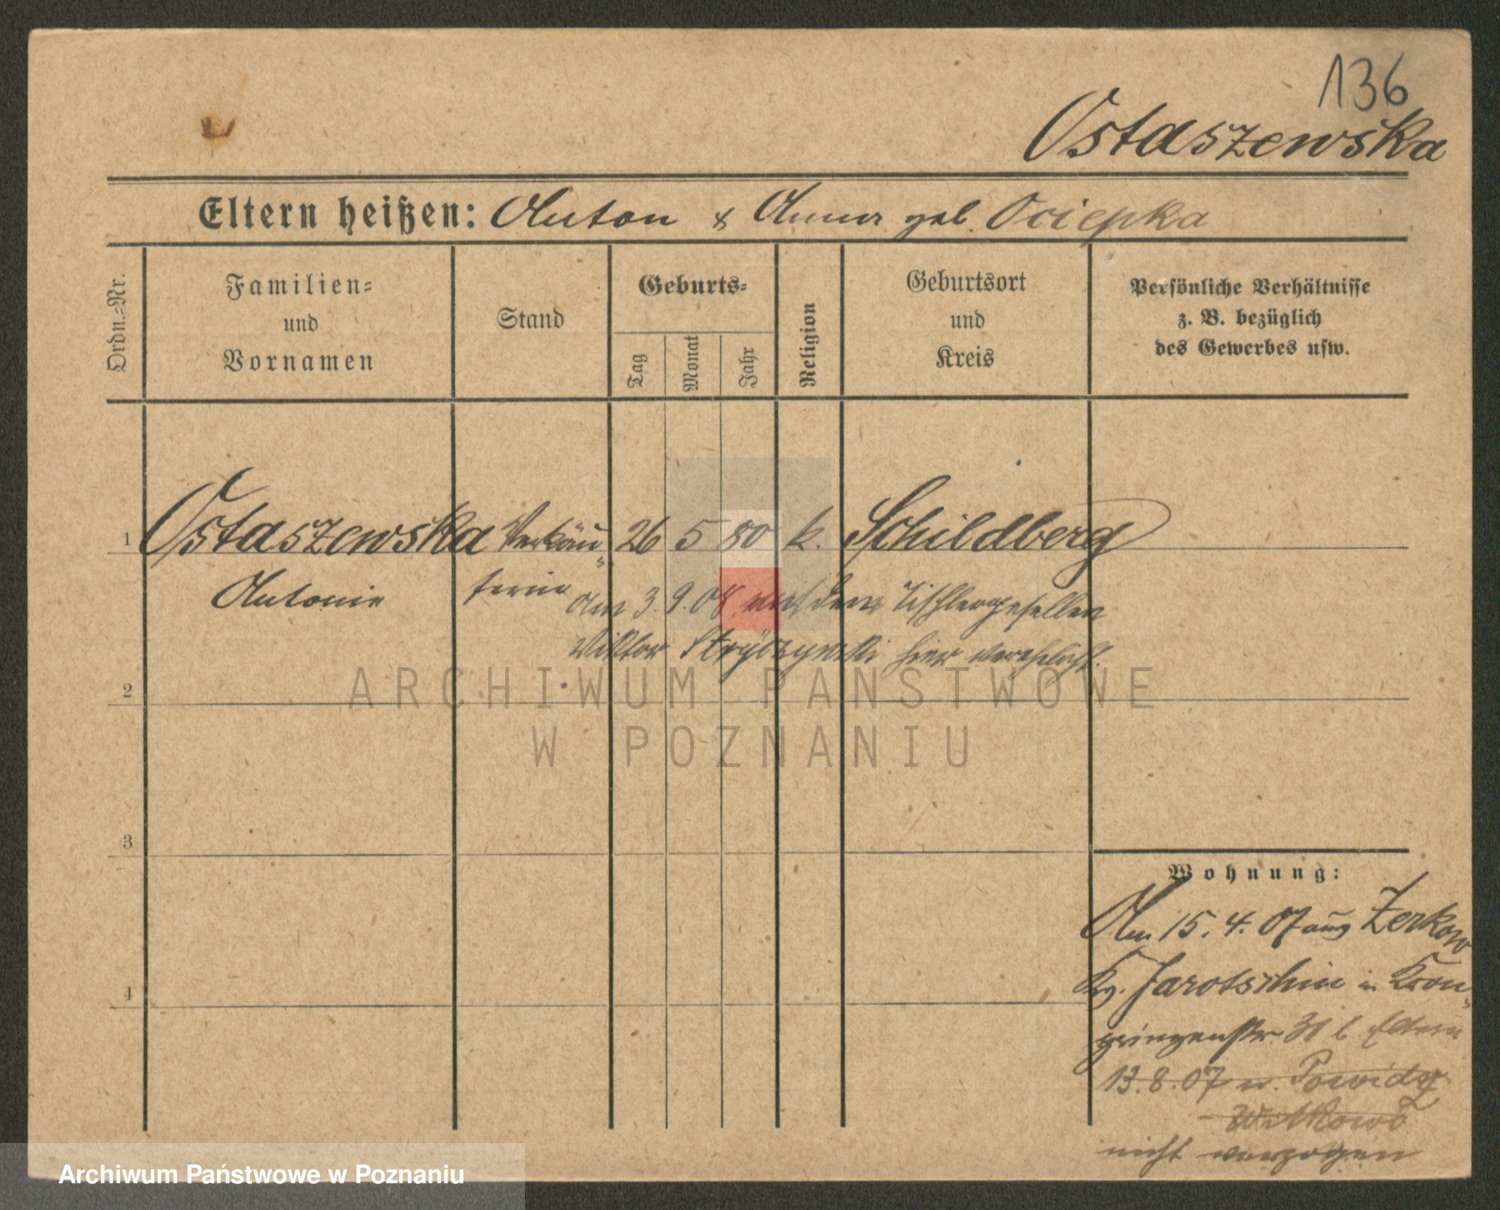 136
Ostaszewska
Eltern heißen: Anton & Anna geb. Ociepka
Ordn.-Nr.
Familien-
und
Vornamen
Stand
Geburts-
Tag
Monat
Jahr
Religion
Geburtsort
und
Kreis
Persönliche Verhältnisse
z. B. bezüglich
des Gewerbes usw.
1 Ostaszewska Verkäu- 26 5 80 k. Schildberg
Antonie ferin
Am 3.9.08 mit dem Tischlergesellen
Viktor hier verehelicht.
2
3
4
Wohnung:
Am 15.4.07 aus Zerkow
Kr. Jarotschin in Kron-
prinzenstr. 31 b Eltern
13.8.07 n. Powidz
Witkowo
nicht verzogen
ARCHIWUM PAŃSTWOWE
W POZNANIU
Archiwum Państwowe w Poznaniu